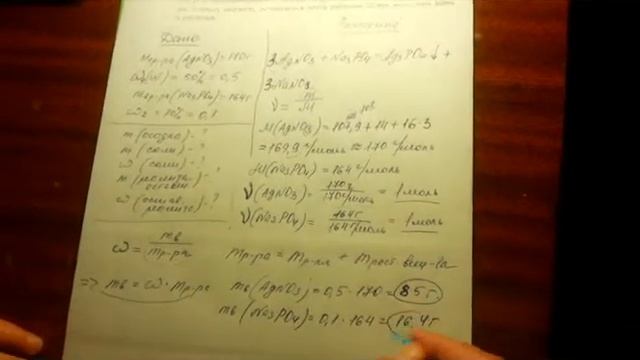 Дано
m р-ра (AgNO₃) = 170 г
ω₁ = 50% = 0,5
m р-ра (Na₃PO₄) = 164 г
ω₂ = 10% = 0,1
m (осадка) - ?
m (соли) - ?
ω (соли) - ?
m
ω
ω = mв / m р-ра
=> mв = ω · m р-ра
3AgNO₃ + Na₃PO₄ = Ag₃PO₄↓ +
3NaNO₃
ν = m / M
108
M(AgNO₃) = 107,9 + 14 + 16·3
= 169,9 г/моль ≈ 170 г/моль
M(Na₃PO₄) = 164 г/моль
ν(AgNO₃) = 170г / 170г/моль = 1 моль
ν(Na₃PO₄) = 164г / 164г/моль = 1 моль
m р-ра = m р-ля + m раст. вещ-ва
mв (AgNO₃) = 0,5 · 170 = 85 г.
mв (Na₃PO₄) = 0,1 · 164 = 16,4 г